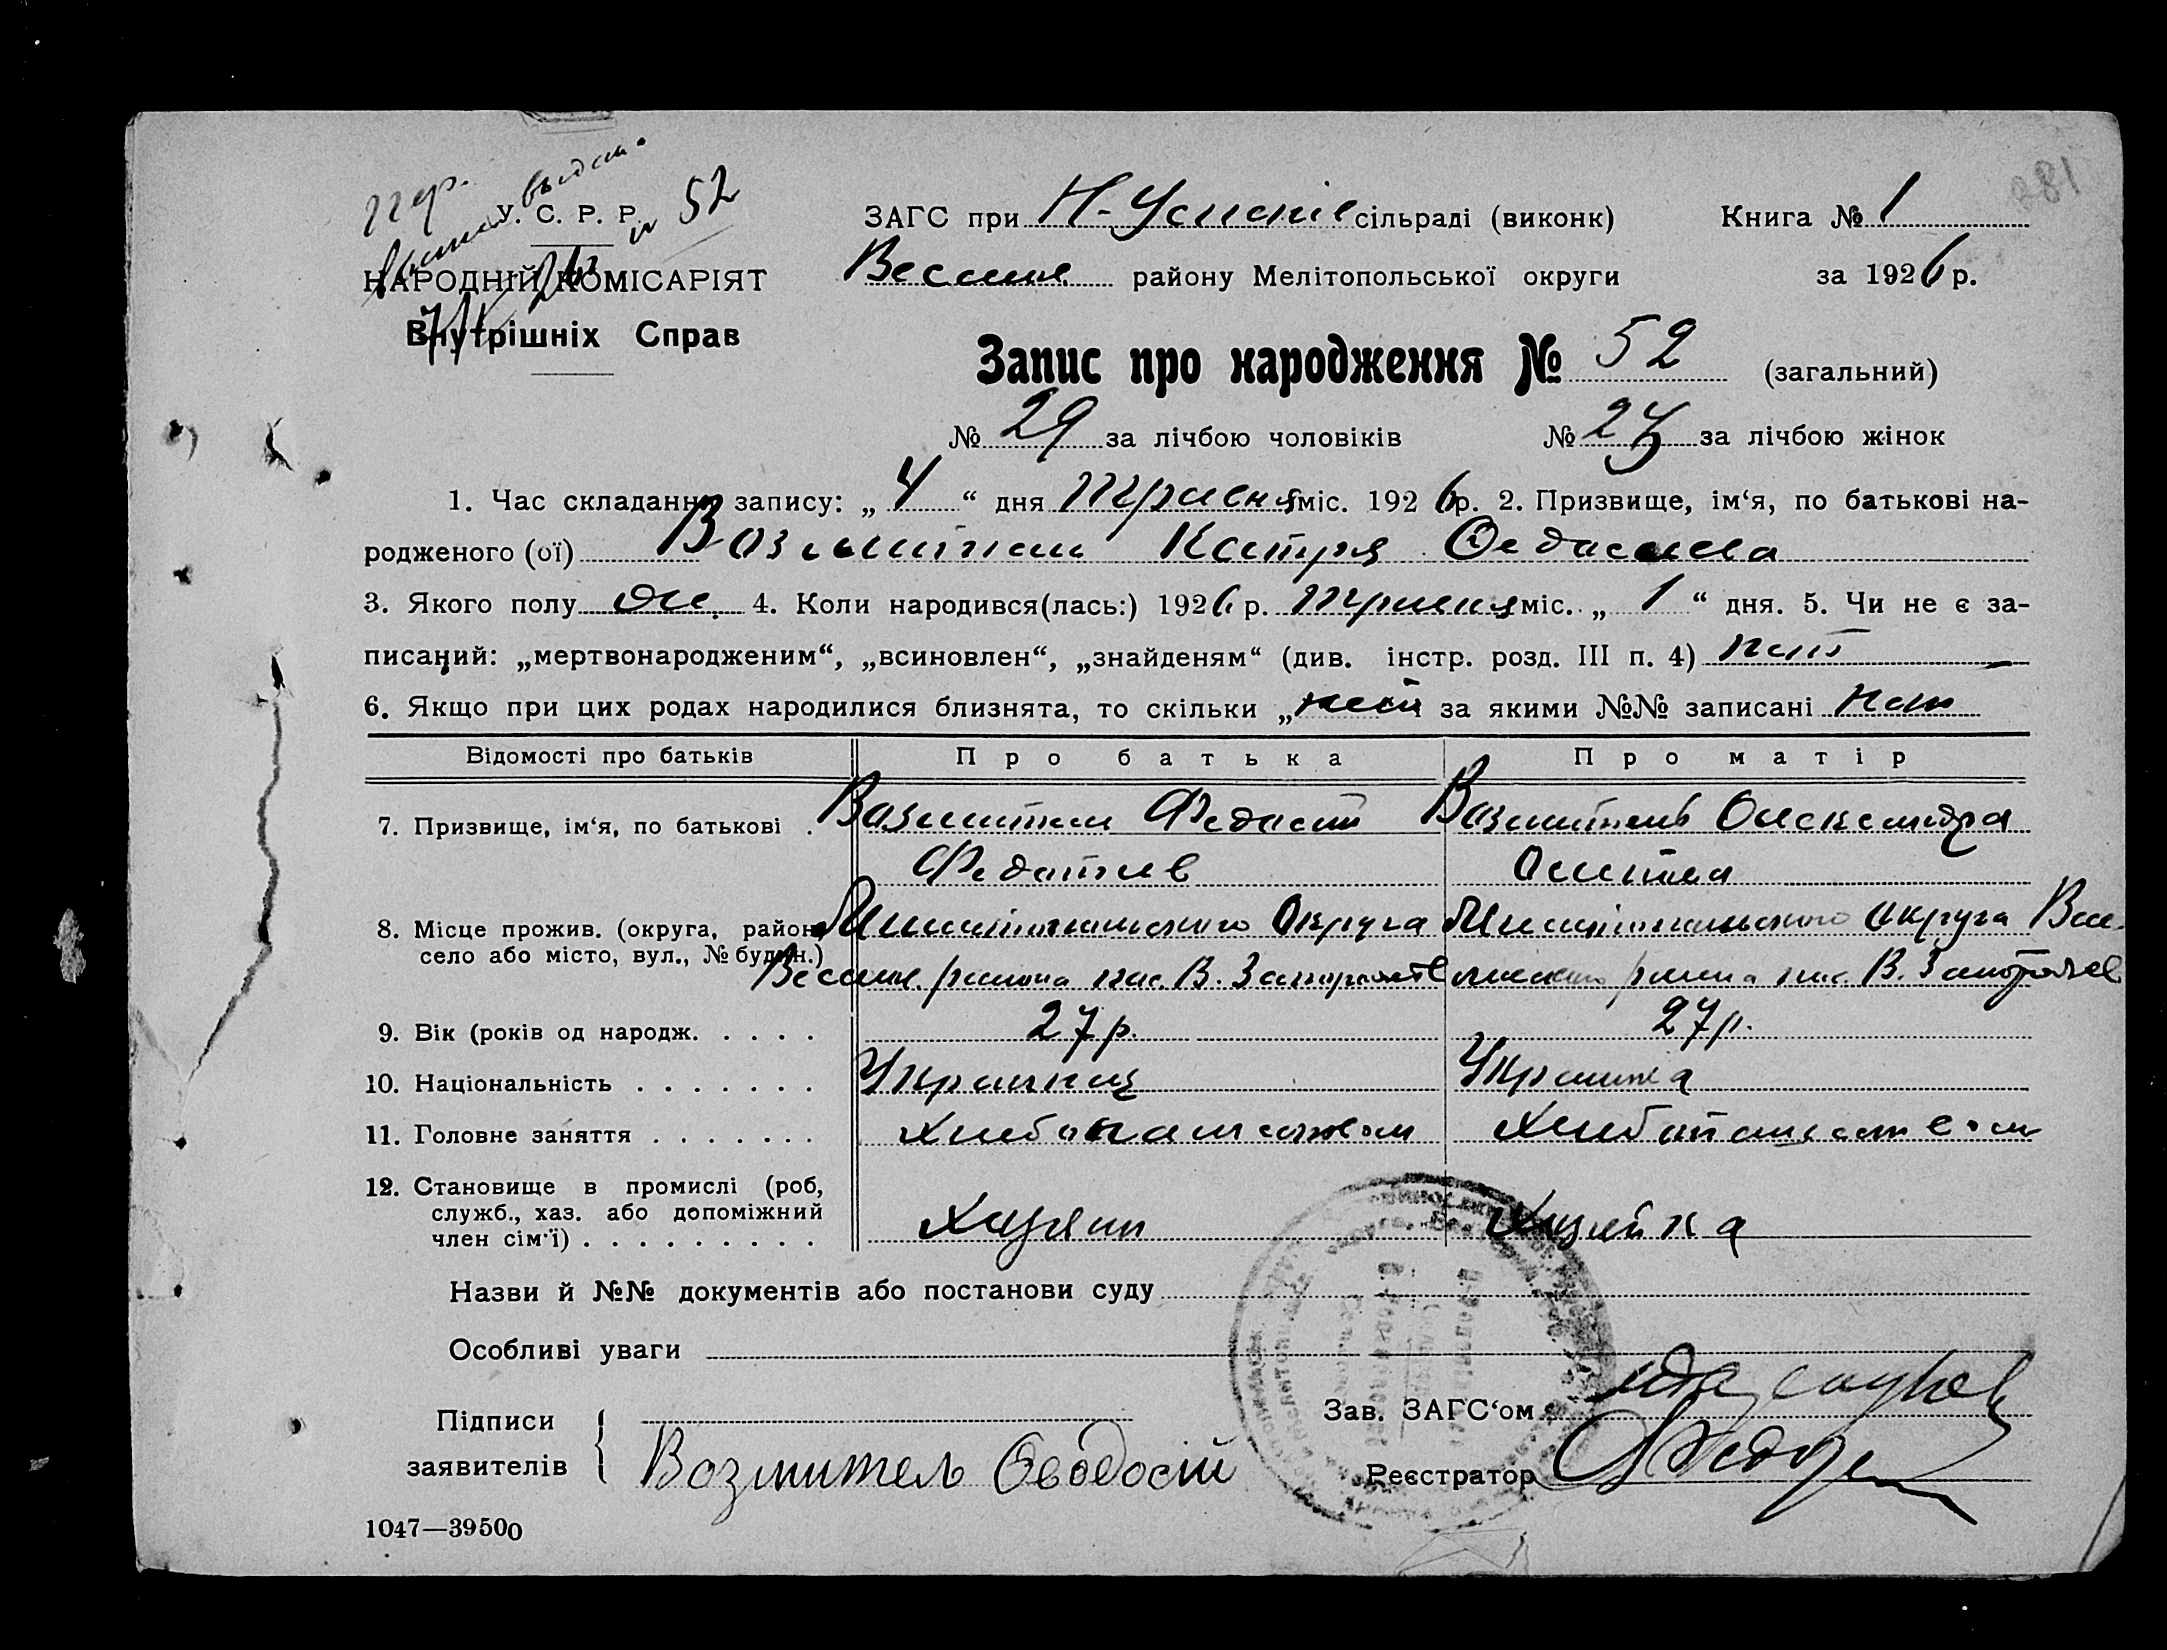 281
У. С. Р. Р.
№ 52
ЗАГС при Н-Успеніе сільраді (виконк) Книга № 1
НАРОДНІЙ КОМІСАРІЯТ
Веселе району Мелітопольської округи за 1926 р.
Внутрішніх Справ
Запис про народження № 52 (загальний)
№ 29 за лічбою чоловіків № 23 за лічбою жінок
1. Час складання запису: „ 4 “ дня Травня міс. 1926 р. 2. Призвище, ім‘я, по батькові на-
родженого (ої) Возмитель Катря
3. Якого полу же. 4. Коли народився(лась:) 1926 р. травня міс. „ 1 “ дня. 5. Чи не є за-
писаний: „мертвонародженим“, „всиновлен“, „знайденям“ (див. інстр. розд. III п. 4) нет
6. Якщо при цих родах народилися близнята, то скільки „ нет за якими №№ записані нет
Відомості про батьків Про батька Про матір
7. Призвище, ім‘я, по батькові . Возмитель Федосій Возмитель Олександра
8. Місце прожив. (округа, район, Мелитопольского Округа Мелитопольского округа Весе-
село або місто, вул., № будин.) Весели. района пос. В. Запорожье района пос. В. Запорожье
9. Вік (років од народж. . . . . 27 р. 27 р.
10. Національність . . . . . . . Украинец Украинка
11. Головне заняття . . . . . . . Хлебопашеством Хлебопашеством
12. Становище в промислі (роб,
служб., хаз. або допоміжний Хазяин Хазяйка
член сім‘ї) . . . . . . . . .
Назви й №№ документів або постанови суду
Особливі уваги
Підписи Зав. ЗАГС‘ом
заявителів Возмитель Феодосій Реєстратор
1047—39500